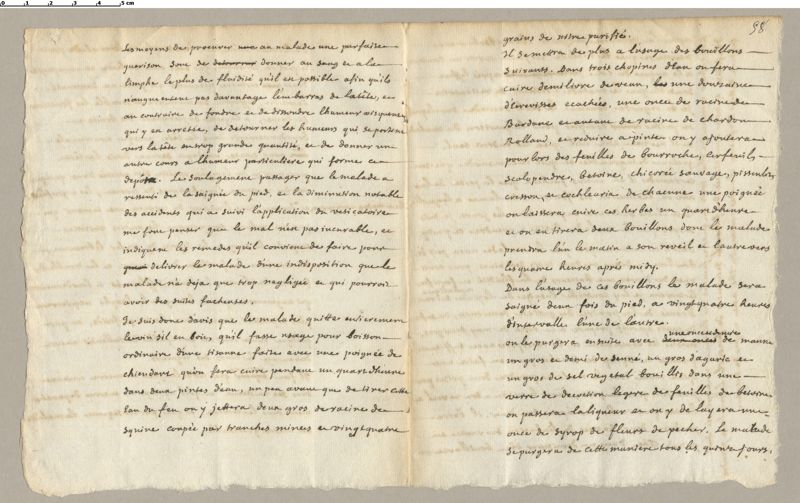 Les moyens de procurer au malade une parfaite
guerison sont de donner au sang et a la
limphe le plus de fluidité qu'il est possible afin qu'ils
n'augmentent pas davantage l'embarras de la tête, et
au contraire de fondre et de dissoudre l'humeur visqueuse
qui y est arretée, de detourner les humeurs qui se portent
vers la tête en trop grande quantité, et de donner un
autre cours a l'humeur particuliere qui forme ce
depôt. Le soulagement passager que le malade a
ressenti de la saignée du pied, et la diminution notable
des accidents qui a suivi l'application du vesicatoire
me font penser que le mal n'est pas incurable, et
indiquent les remedes qu'il convient de faire pour
delivrer le malade d'une indisposition que le
malade n'a deja que trop negligée et qui pourroit
avoir des suites facheuses.
Je suis donc d'avis que le malade quitte entierement
le vin s'il en boit, qu'il fasse usage pour boisson
ordinaire d'une tisanne faite avec une poignée de
chiendent qu'on fera cuire pendant un quart d'heure
dans deux pintes d'eau, un peu avant que de tirer cette
eau du feu on y jettera deux gros de racine de
squine coupée par tranches minces et vingt quatre
98
grains de nitre purifié.
Il se mettra de plus a l'usage des bouillons
suivants. Dans trois chopines d'eau on fera
cuire demi livre de veau, une douzaine
d'ecrevisses ecachées, une once de racine de
Bardane et autant de racine de chardon
Rolland, et reduire a pinte on y ajoutera
pour lors des feuilles de bourroche, cerfeuil,
scolopendre, betoine, chicorée sauvage, pissenlit,
cresson, et cochlearia de chacune une poignée
on laissera cuire ces herbes un quart d'heure
et on en tirera deux bouillons dont le malade
prendra l'un le matin a son reveil et l'autre vers
les quatre heures après midy.
Dans l'usage de ces bouillons le malade sera
saigné deux fois du pied, a vingt quatre heures
d'intervalle l'une de l'autre.
une once et demie
on le purgera ensuite avec deux onces de manne
un gros et demi de senné, un gros d'agaric et
un gros de sel vegetal bouillis dans un
verre de decoction legere de feuilles de betoine
on passera la liqueur et on y delayera une
once de syrop de fleurs de pecher. Le malade
se purgera de cette maniere tous les quinze jours.